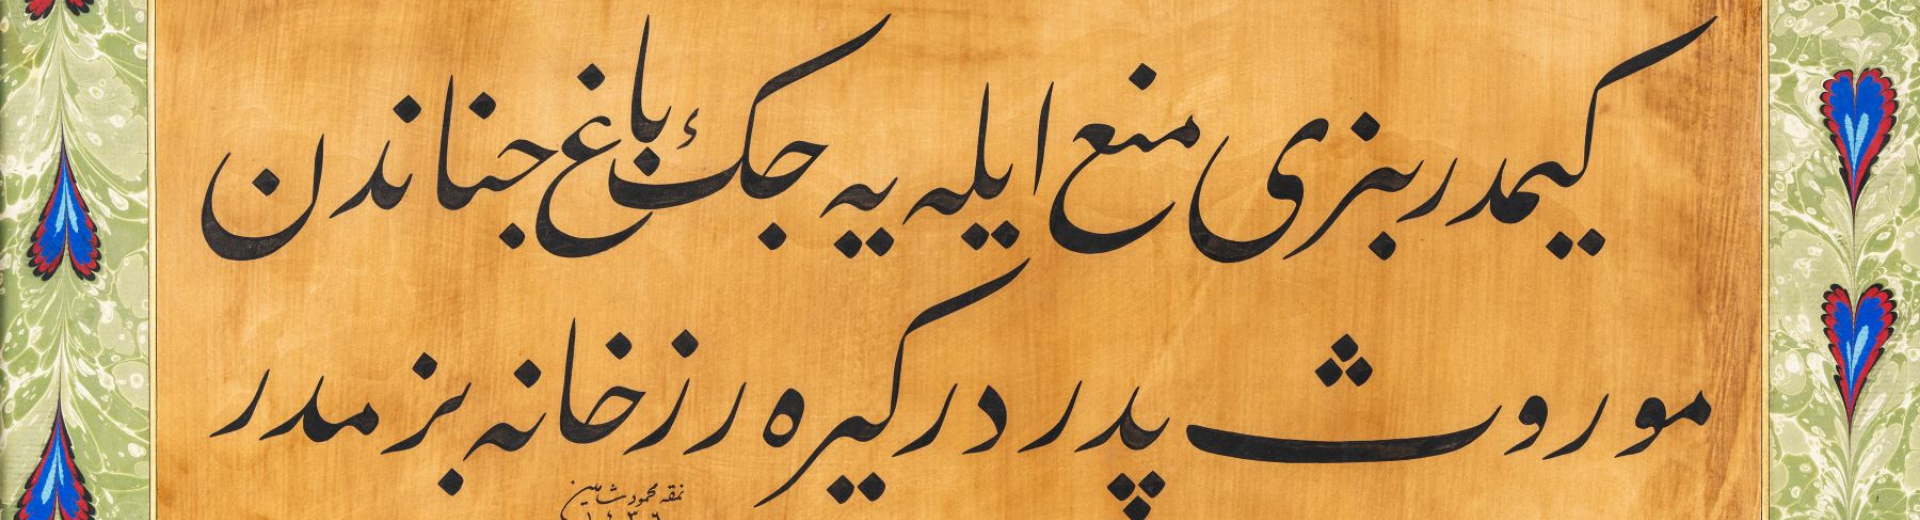 کیمدر بزی منع ایله یه جك باغ جناندن
موروث پدر در کیره رز خانه بزمدر
نمقه محمود شاهین
١٤٣٦